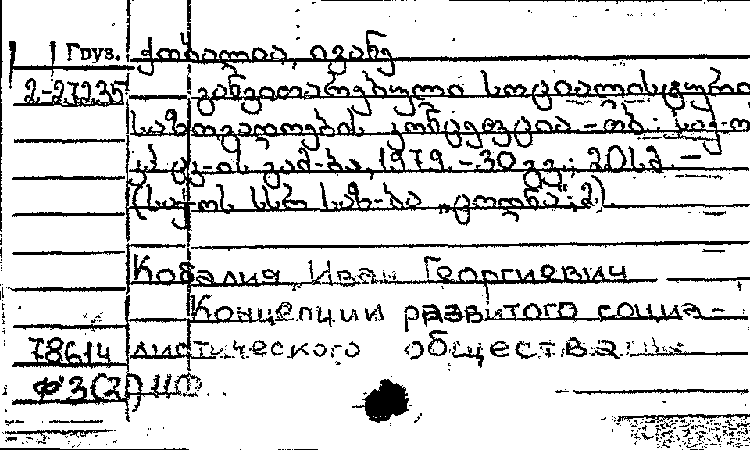 Груз. ქობალია, ივანე
2-27235 განვითარებული სოციალისტური
საზოგადოების კონცეფცია – თბ.: საქ-ოს
კპ ცკ-ის გამ-ბა, 1979. – 30 გვ.; 20 სმ. –
(საქ-ოს სსრ საზ-ბა „ცოდნა“; 2)
Кобалия, Иван Георгиевич
Концепции развитого социа-
78614 листического общества
Ф 3(2) 11